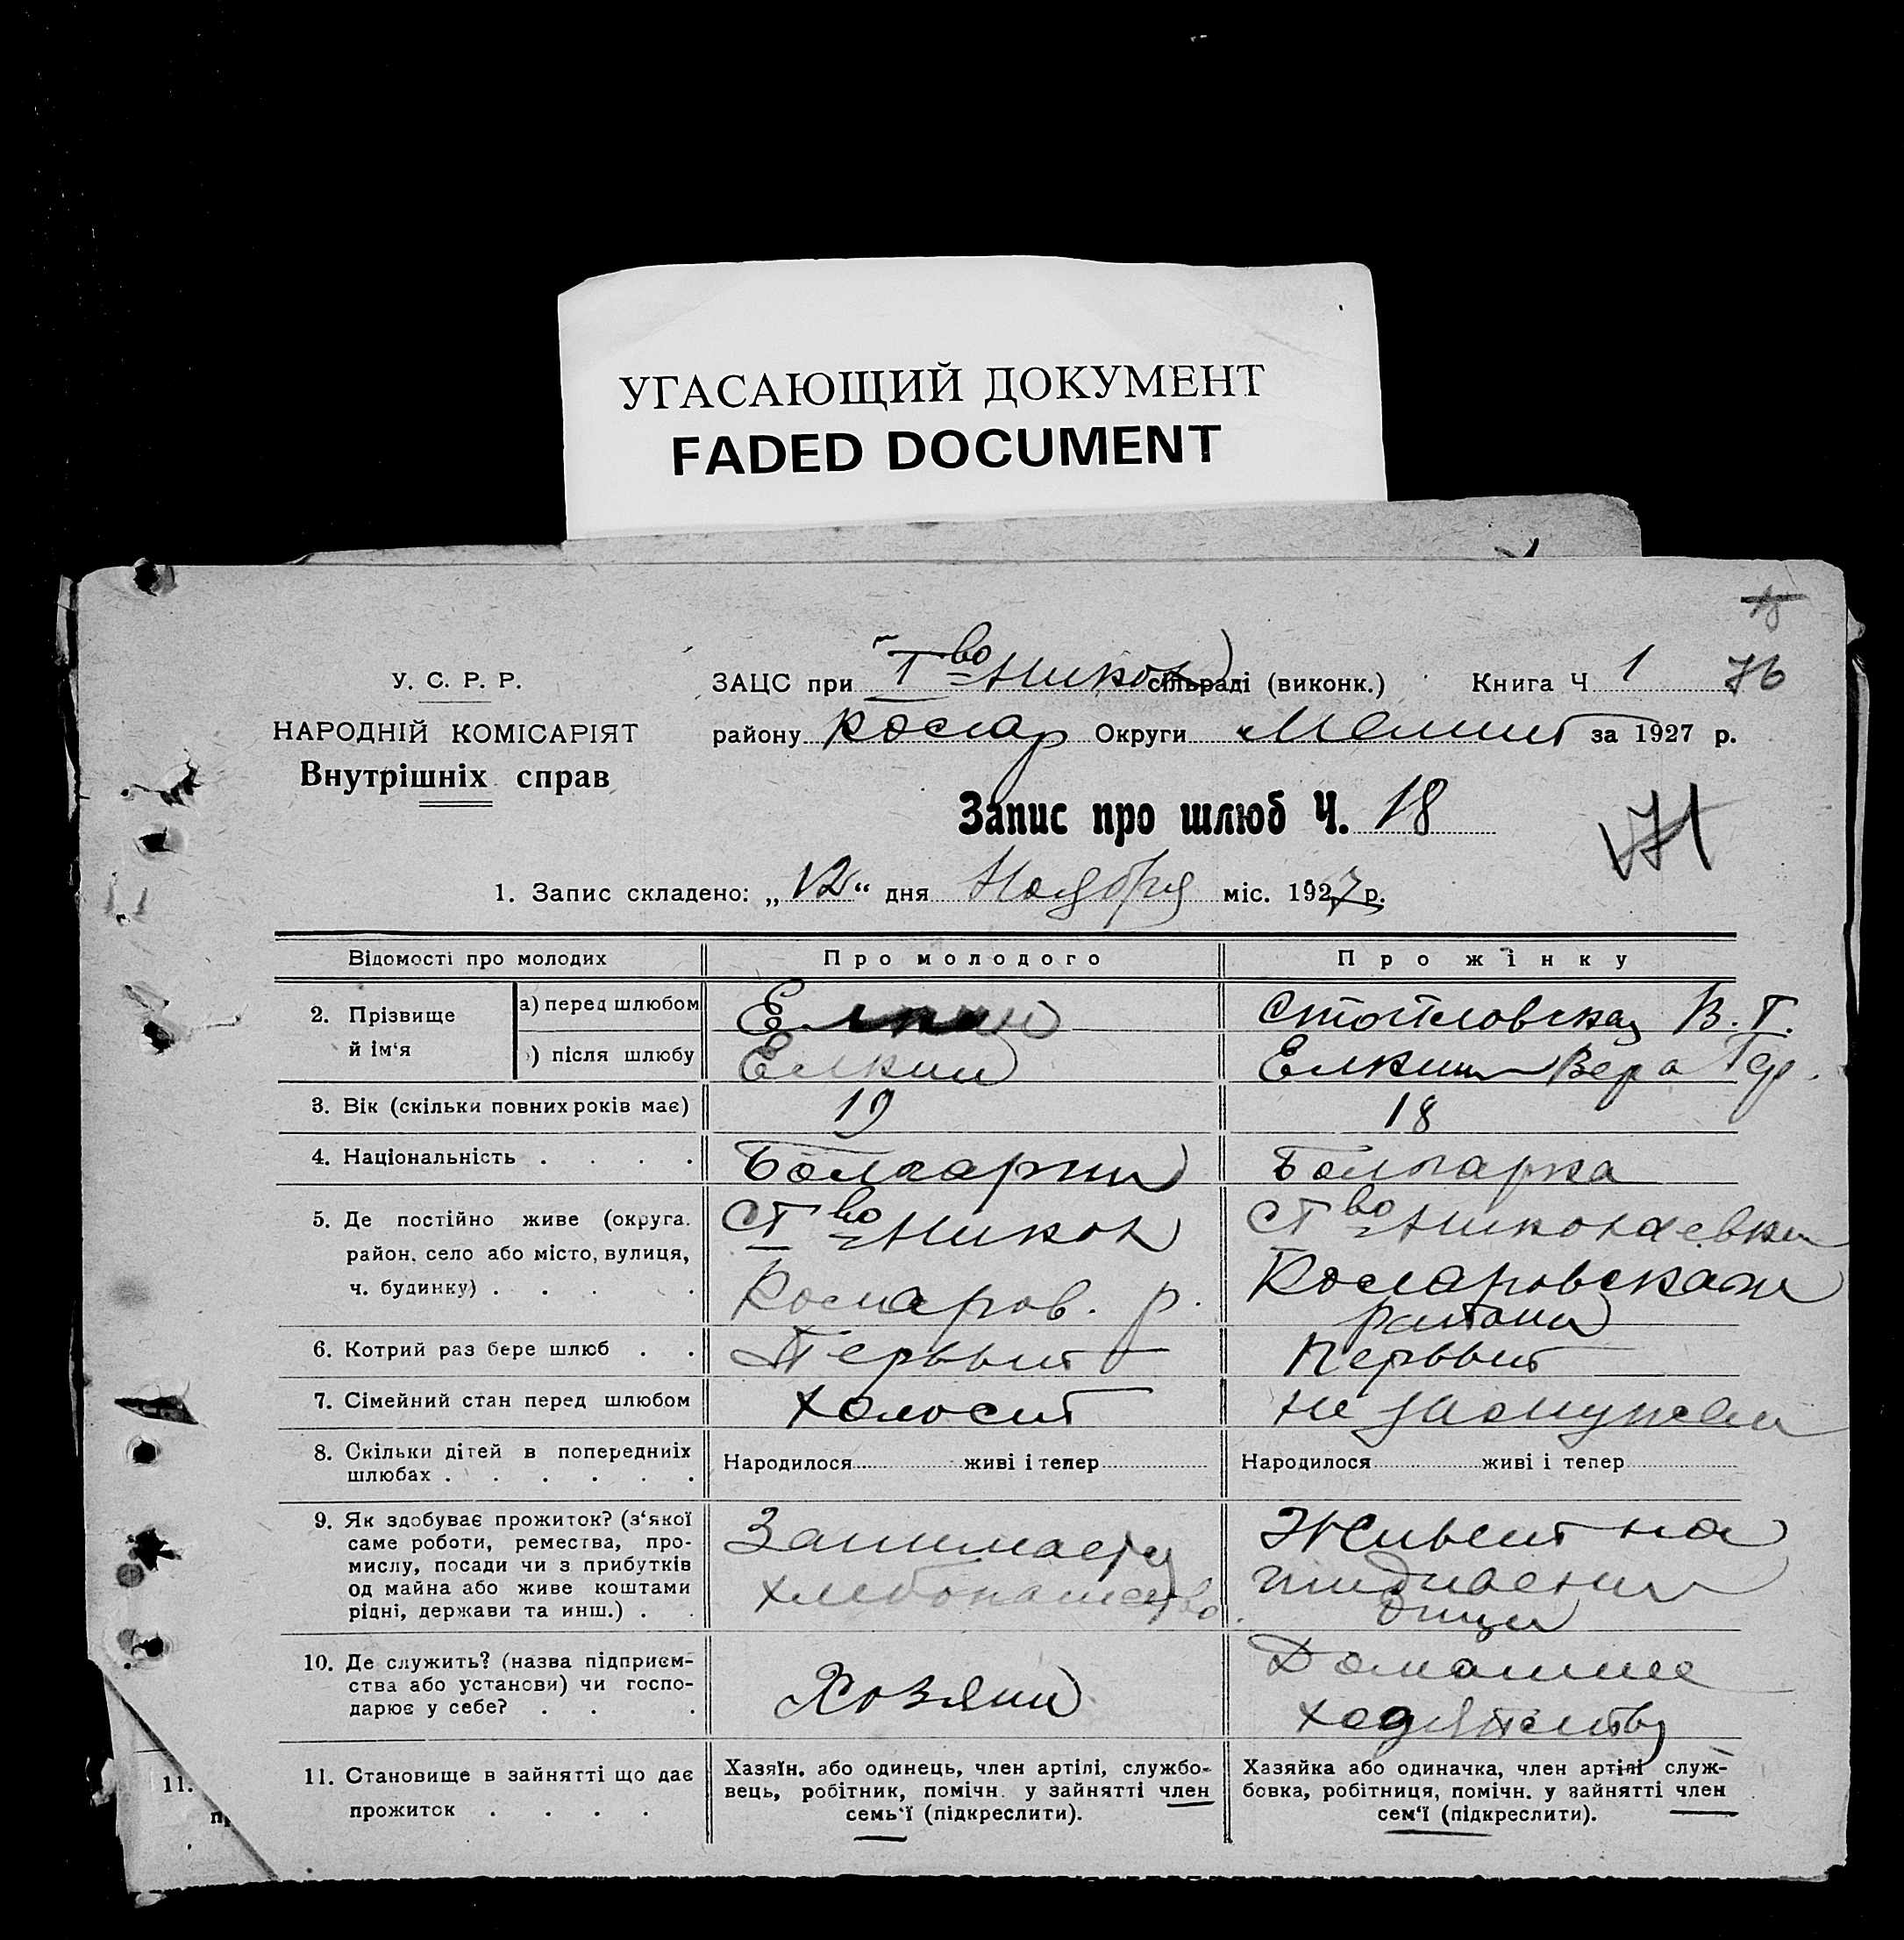 УГАСАЮЩИЙ ДОКУМЕНТ
FADED DOCUMENT
У. С. Р. Р.
НАРОДНІЙ КОМІСАРІЯТ
Внутрішніх справ
ЗАЦС при Т во Никол сільраді (виконк.) Книга Ч 1 76
району Коларр Округи Мелит за 1927 р.
Запис про шлюб Ч. 18
71
1. Запис складено: „12“ дня Ноября міс. 1927 р.
Відомості про молодих Про молодого Про жінку
2. Прізвище й ім‘я
а) перед шлюбом Елкин В. Г.
) після шлюбу Елкин Елкин Вера
3. Вік (скільки повних років має) 19 18
4. Національність . . . . Болгарин Болгарка
5. Де постійно живе (округа. Ст во Никол Ст во Николаевки
район, село або місто, вулиця,
ч. будинку) . . . . Коларов. р. Коларовскаги
района
6. Котрий раз бере шлюб . . Первыит Первыит
7. Сімейний стан перед шлюбом Холосит не замужем
8. Скільки дітей в попередниіх
шлюбах . . . . . . Народилося живі і тепер Народилося живі і тепер
9. Як здобуває прожиток? (з‘якої
саме роботи, ремества, про-
мислу, посади чи з прибутків
од майна або живе коштами
рідні, держави та инш.) . .
Занимаеться
хлебопашество.
Живеит на
иждивении
отца
10. Де служить? (назва підприєм-
ства або установи) чи госпо-
дарює у себе? . . .
Хозяин
Домашнее
11. Становище в зайнятті що дає
прожиток . . . .
Хазяїн. або одинець, член артілі, службо-
вець, робітник, помічн. у зайнятті член
семь‘ї (підкреслити).
Хазяйка або одиначка, член артілі служ-
бовка, робітниця, помічн. у зайнятті член
сем‘ї (підкреслити).
11.